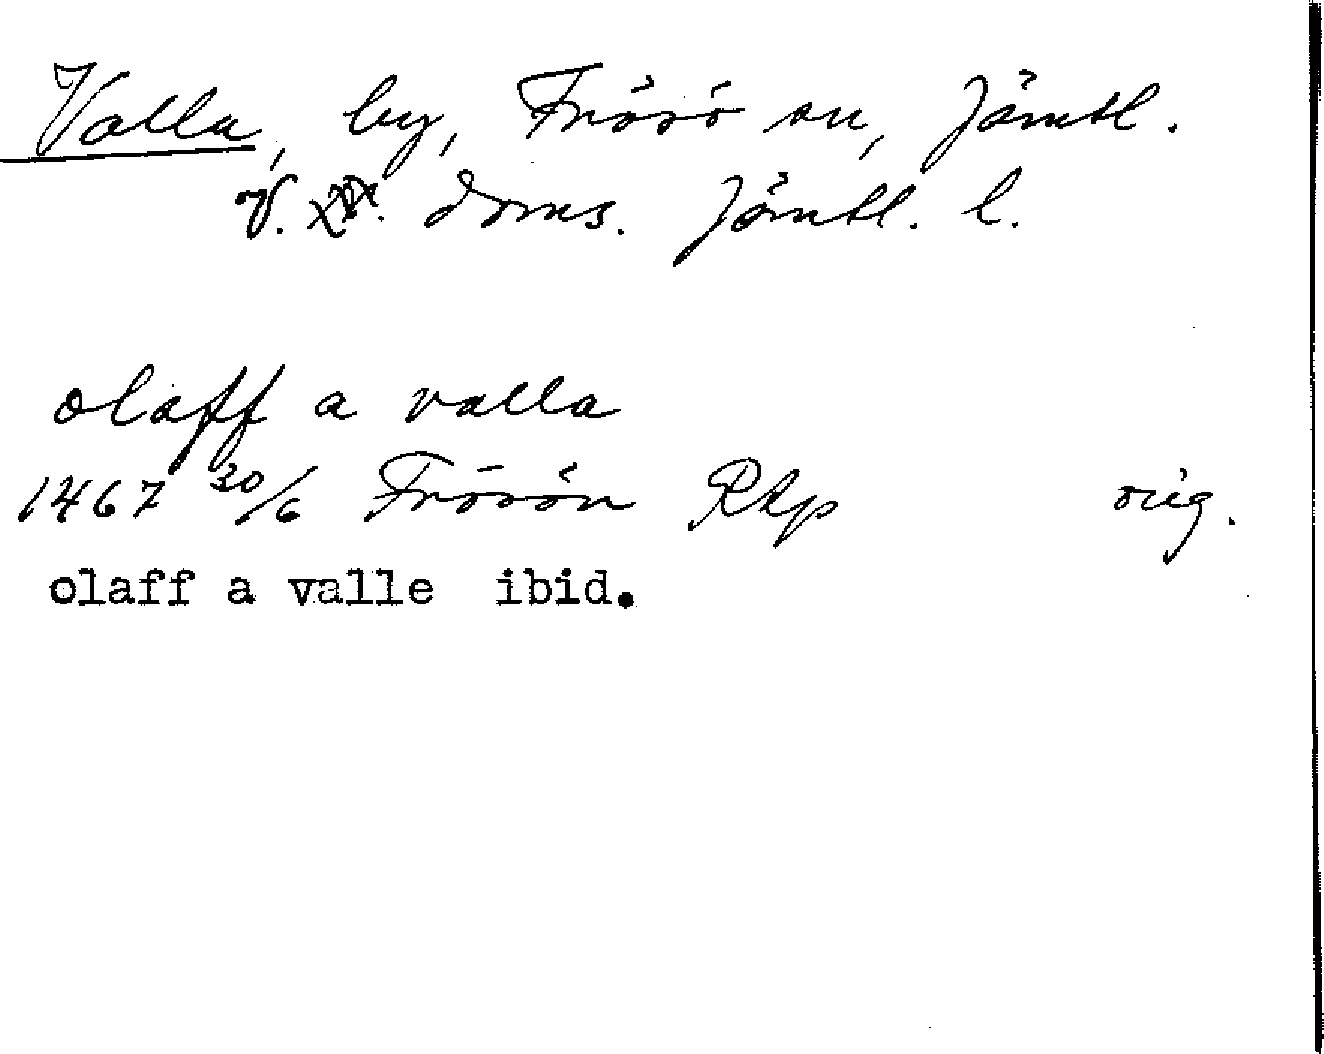 Valla, by, Frösö sn, Jämtl.
V. doms. Jämtl. l.
olaff a valla
1467 30/6 Frösön Rap orig.
olaff a valle ibid.